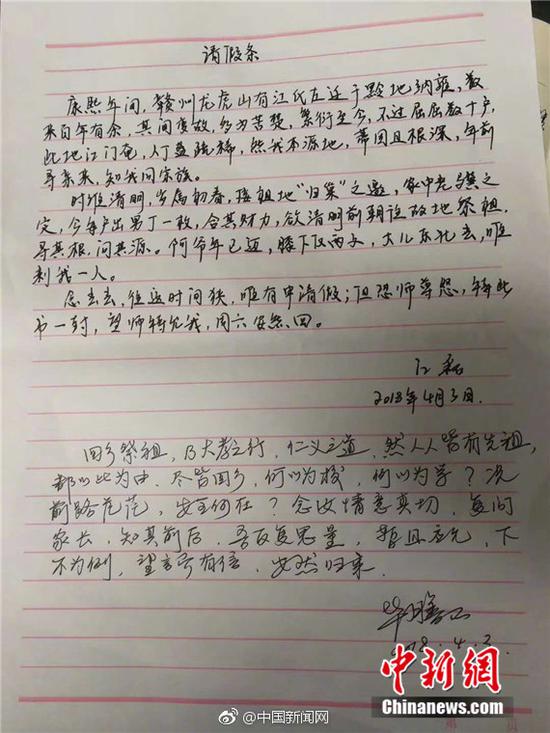 请假条
康熙年间，赣州龙虎山有江氏左迁于黔地纳雍，数
来百年有余，其间变故，多为苦楚，繁衍至今，不过屈屈数十户，
此地江门奄，人丁益疏稀，然我本源地，蒂固且根深，年前
寻亲来，知我问宗族。
时维清明，岁属初春，接祖地“归集”之邀，家中老骥之
定，今每户出男丁一枚，合其财力，欲清明前朝诣故地祭祖，
寻其根，问其源。阿爷年已迈，膝下仅两女，大儿东北去，唯
剩我一人。
念去去，往返时间狭，唯有申请假；但恐师尊怨，特此
书一封，望师特允我，周六安然回。
江
2018年4月3日.
回乡祭祖，乃大孝之行，仁义之道，然人人皆有先祖，
都以此为由，尽皆回乡，何以为校，何以为学？况
前路茫茫，安全何在？念汝情意真切，复问
家长，知其前后，吾反复思量，暂且应允，下
不为例，望言而有信，安然归来.
2018.4.3.
中新网
Chinanews.com
@中国新闻网
第 页